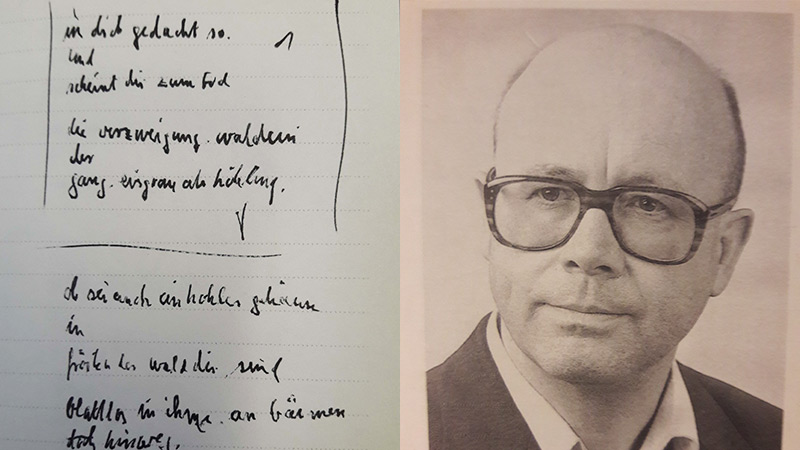 in dich gedacht so.
und
scheint die zum Tod
die verzweigung. waldein
der
gang. eisgrau als höhling.
ob sei auch ein hohles gehäuse
in
der wald die. sind
blattlos in ihm. an bäumen